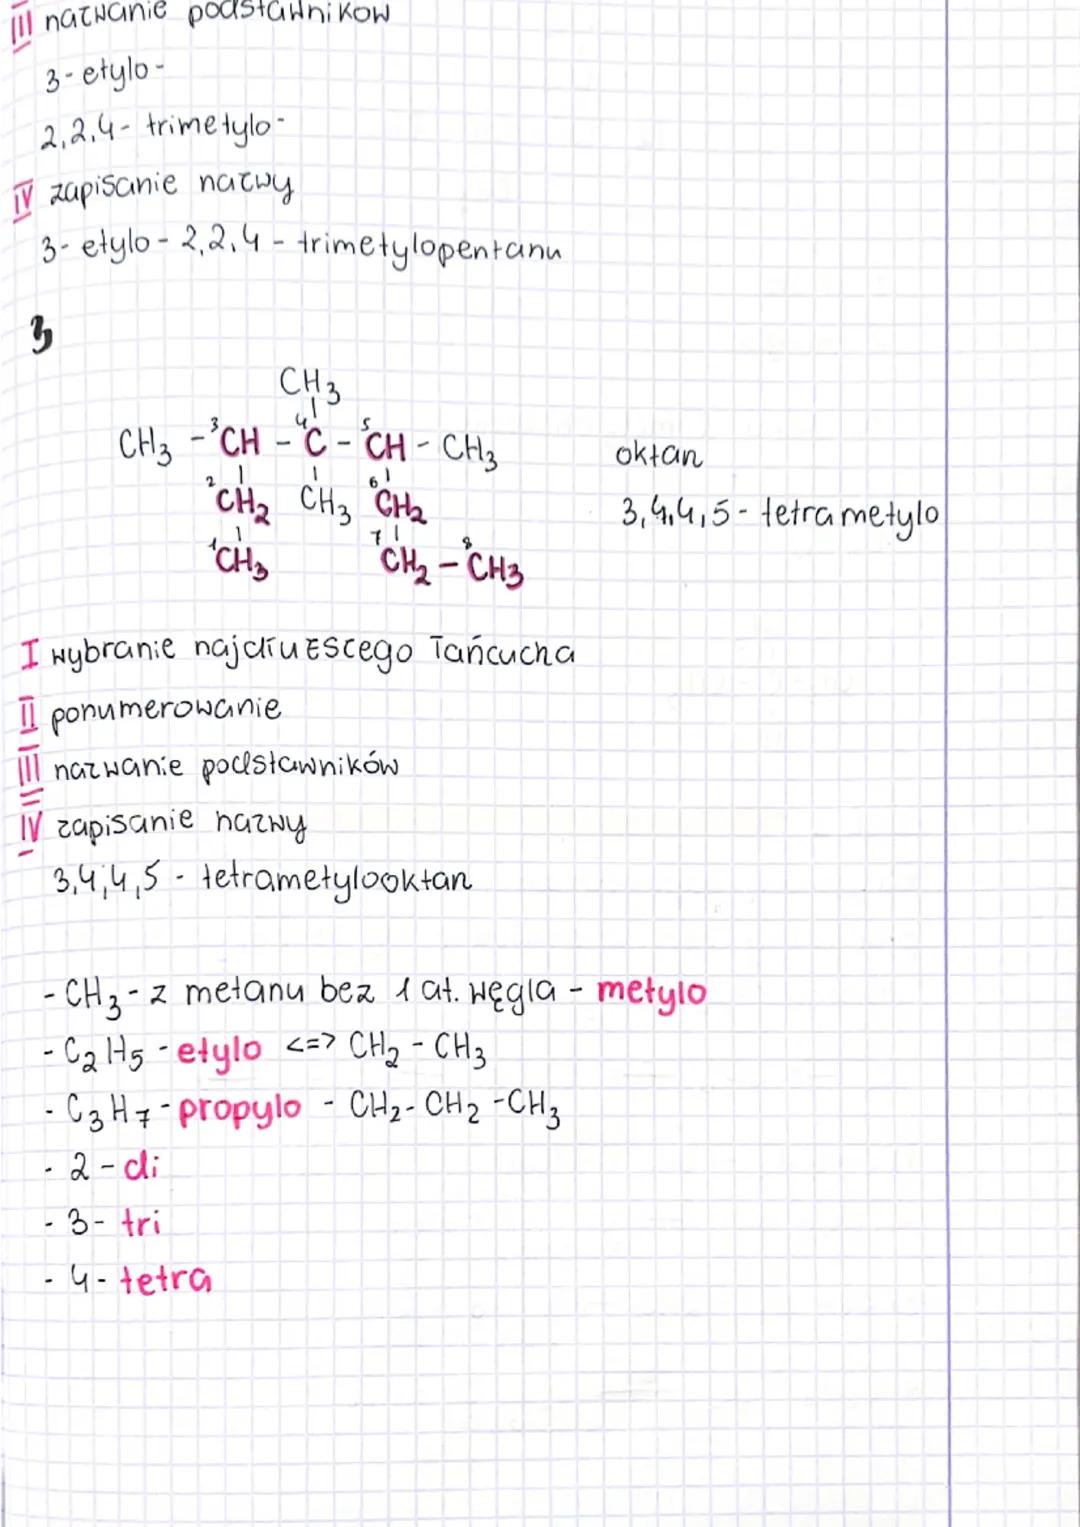 III nazwanie podstawników
3-etylo-
2,2,4- trimetylo-
IV zapisanie nazwy
3- etylo - 2,2,4 - trimetylopentanu
3
CH3
CH3 - ³CH - ⁴C - ⁵CH - CH3 oktan
²CH2 CH3 ⁶CH2 3,4,4,5 - tetrametylo
¹CH3 ⁷CH2 - ⁸CH3
I wybranie najdłuższego łańcucha
II ponumerowanie
III nazwanie podstawników
IV zapisanie nazwy
3,4,4,5 - tetrametylooktan
- CH3 - z metanu bez 1 at. węgla - metylo
- C2H5 - etylo <=> CH2 - CH3
- C3H7 - propylo - CH2 - CH2 - CH3
- 2 - di
- 3 - tri
- 4 - tetra